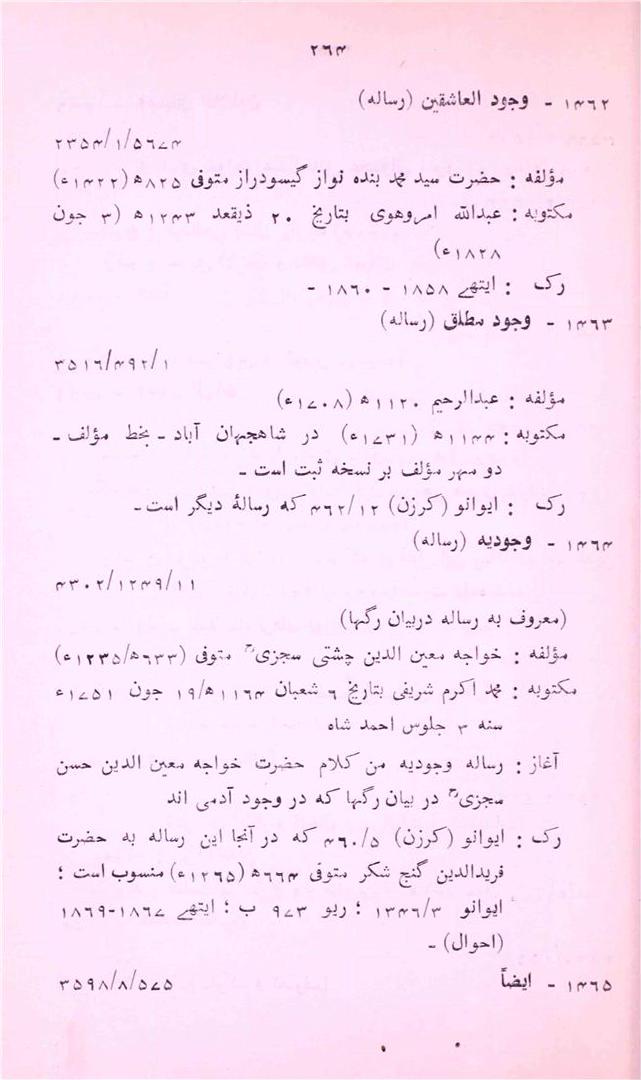 ۲۶۴
۱۴۶۲ - وجود العاشقین (رساله)
۲۳۵۴/۱/۵۶۷۴
مؤلفه : حضرت سید محمد بنده نواز گیسودراز متوفی ۸۲۵ھ (۱۴۲۲ء)
مکتوبه : عبدالله امروهوی بتاریخ ۲۰ ذیقعد ۱۲۴۳ھ (۳ جون
۱۸۲۸ء)
رک : ایتھے ۱۸۵۸ - ۱۸۶۰ -
۱۴۶۳ - وجود مطلق (رساله)
۳۵۱۶/۴۹۲/۱
مؤلفه : عبدالرحیم ۱۱۲۰ھ (۱۷۰۸ء)
مکتوبه : ۱۱۴۴ھ (۱۷۳۱ء) در شاهجهان آباد ـ بخط مؤلف ـ
دو مهر مؤلف بر نسخه ثبت است ـ
رک : ایوانو (کرزن) ۴۶۲/۱۲ که رسالهٔ دیگر است ـ
۱۴۶۴ - وجودیه (رساله)
۴۳۰۲/۱۲۴۹/۱۱
(معروف به رساله دربیان رگها)
مؤلفه : خواجه معین الدین چشتی سجزیؒ متوفی (۶۳۳ھ/۱۲۳۵ء)
مکتوبه : محمد اکرم شریفی بتاریخ ۶ شعبان ۱۱۶۴ھ/۱۹ جون ۱۷۵۱ء
سنه ۳ جلوس احمد شاه
آغاز : رساله وجودیه من کلام حضرت خواجه معین الدین حسن
سجزیؒ در بیان رگها که در وجود آدمی اند
رک : ایوانو (کرزن) ۴۶۰/۵ که در آنجا این رساله به حضرت
فریدالدین گنج شکر متوفی ۶۶۴ھ (۱۲۶۵ء) منسوب است ؛
ایوانو ۱۳۴۶/۳ ؛ ریو ۹۷۳ ب ؛ ایتھے ۱۸۶۷-۱۸۶۹
(احوال) ـ
۱۴۶۵ - ایضاً ۳۵۹۸/۸/۵۷۵